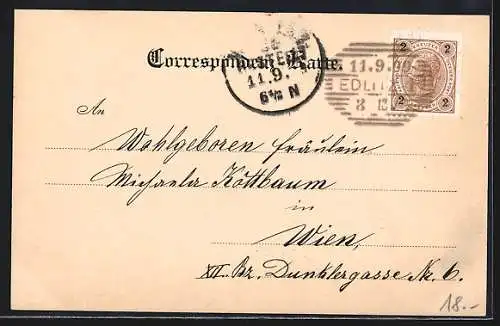 Correspondenz-Karte.
11.9.
6½ N
2 2
11.9.00
EDLITZ
2 2
An
Wohlgeboren Fräulein
Michaela Köttbaum
in
Wien,
XII. Bz. Dunklergasse Nr. 6.
18.-